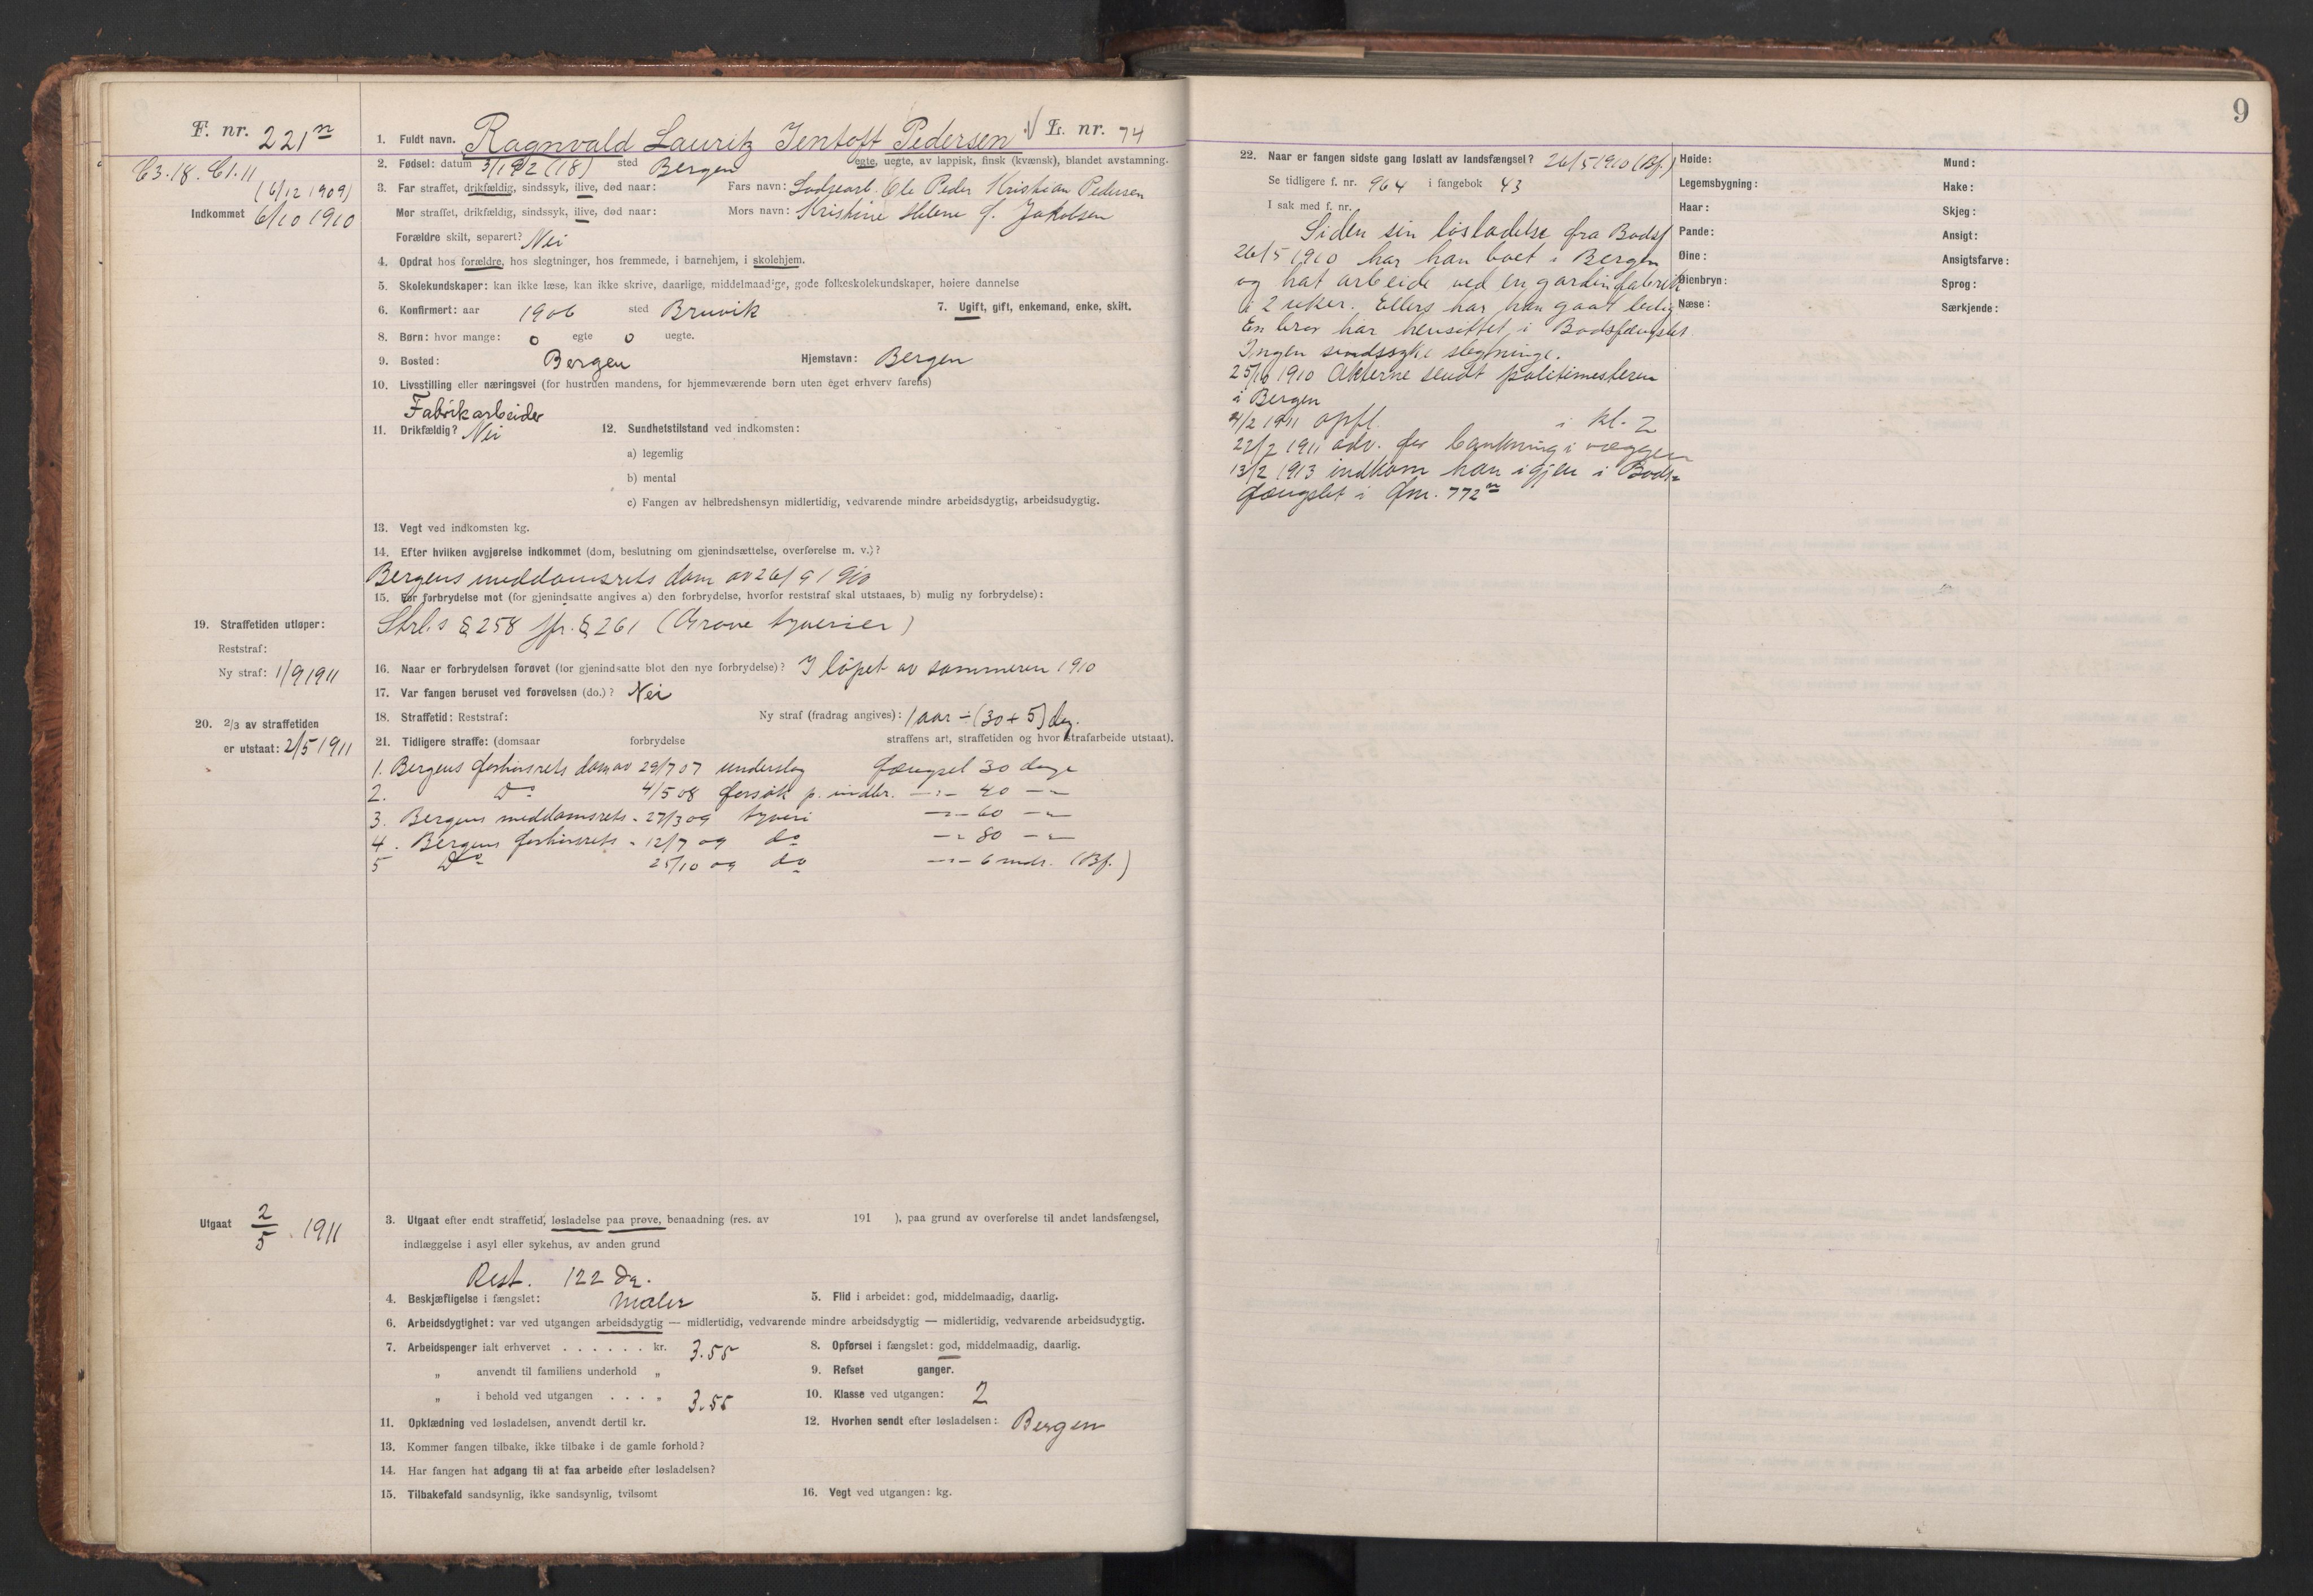 F. nr. 221n
C3.18. C1.11
(6/12 1909)
Indkommet 6/10 1910
1. Fuldt navn. Ragnvald Lauritz Jentoft Pedersen L. nr. 74
2. Fødsel: datum 3/1 92 (18) sted Bergen egte, uegte, av lappisk, finsk (kvænsk), blandet avstamning.
3. Far straffet, drikfældig, sindssyk, ilive, død naar: Fars navn: Ole Peder Kristian Pedersen
Mor straffet, drikfældig, sindssyk, ilive, død naar: Mors navn: Kristine Helene f. Jakobsen
Forældre skilt, separert? Nei
4. Opdrat hos forældre, hos slegtninger, hos fremmede, i barnehjem, i skolehjem.
5. Skolekundskaper: kan ikke læse, kan ikke skrive, daarlige, middelmaadige, gode folkeskolekundskaper, høiere dannelse
6. Konfirmert: aar 1906 sted Bruvik 7. Ugift, gift, enkemand, enke, skilt.
8. Børn: hvor mange: 0 egte 0 uegte.
9. Bosted: Bergen Hjemstavn: Bergen
10. Livsstilling eller næringsvei (for hustruen mandens, for hjemmeværende børn uten eget erhverv farens)
Fabrikarbeider
11. Drikfældig? Nei 12. Sundhetstilstand ved indkomsten:
a) legemlig
b) mental
c) Fangen av helbredshensyn midlertidig, vedvarende mindre arbeidsdygtig, arbeidsudygtig.
13. Vegt ved indkomsten kg.
14. Efter hvilken avgjørelse indkommet (dom, beslutning om gjenindsættelse, overførelse m. v.)?
Bergens meddomsrets dom av 26/9 1910
15. For forbrydelse mot (for gjenindsatte angives a) den forbrydelse, hvorfor reststraf skal utstaaes, b) mulig ny forbrydelse):
Strl.s § 258 jfr. § 261 (Grove tyverier)
19. Straffetiden utløper:
Reststraf:
Ny straf: 1/9 1911
16. Naar er forbrydelsen forøvet (for gjenindsatte blot den nye forbrydelse)? I løpet av sommeren 1910
17. Var fangen beruset ved forøvelsen (do.)? Nei
20. 2/3 av straffetiden
er utstaat: 2/5 1911
18. Straffetid: Reststraf: Ny straf (fradrag angives): 1 aar ÷ (30 + 5) dg.
21. Tidligere straffe: (domsaar forbrydelse straffens art, straffetiden og hvor strafarbeide utstaat).
1. Bergens forhørsrets dom av 29/7 07 underslag fængsel 30 dage
2. Do 4/5 08 forsøk p. indbr. -"- 40 -"-
3. Bergens meddomsrets - 27/3 09 tyveri -"- 60 -"-
4. Bergens forhørsrets - 12/7 09 do -"- 80 -"-
5 Do 25/10 09 do -"- 6 mdr. (Bf.)
Utgaat 2/5 1911
3. Utgaat efter endt straffetid, løsladelse paa prøve, benaadning (res. av 191 ), paa grund av overførelse til andet landsfængsel,
indlæggelse i asyl eller sykehus, av anden grund
Rest. 122 da.
4. Beskjæftigelse i fængslet: Maler 5. Flid i arbeidet: god, middelmaadig, daarlig.
6. Arbeidsdygtighet: var ved utgangen arbeidsdygtig — midlertidig, vedvarende mindre arbeidsdygtig — midlertidig, vedvarende arbeidsudygtig.
7. Arbeidspenger ialt erhvervet . . . . . . kr. 3.55 8. Opførsel i fængslet: god, middelmaadig, daarlig.
„ anvendt til familiens underhold „ 9. Refset ganger.
„ i behold ved utgangen . . . . „ 3.55 10. Klasse ved utgangen: 2
11. Opklædning ved løsladelsen, anvendt dertil kr. 12. Hvorhen sendt efter løsladelsen: Bergen
13. Kommer fangen tilbake, ikke tilbake i de gamle forhold?
14. Har fangen hat adgang til at faa arbeide efter løsladelsen?
15. Tilbakefald sandsynlig, ikke sandsynlig, tvilsomt 16. Vegt ved utgangen: kg.
9
22. Naar er fangen sidste gang løslatt av landsfængsel? 26/5 1910 (Bf.)
Se tidligere f. nr. 964 i fangebok 43
I sak med f. nr.
Siden sin løsladelse fra Bodsf
26/5 1910 har han boet i Bergen
og hat arbeide ved en gardinfabrik
i 2 uker. Ellers har han gaat ledig
En bror har hensittet i Bodsfængslet.
Ingen sindssyke slegtninge.
25/10 1910 Akterne sendt politimesteren
i Bergen
4/2 1911 opfl. i kl. 2
22/2 1911 adv. for bankning i væggen
13/2 1913 indkom han igjen i Bods-
fængslet i fnr. 772n
Høide:
Legemsbygning:
Haar:
Pande:
Øine:
Øienbryn:
Næse:
Mund:
Hake:
Skjeg:
Ansigt:
Ansigtsfarve:
Sprog:
Særkjende: